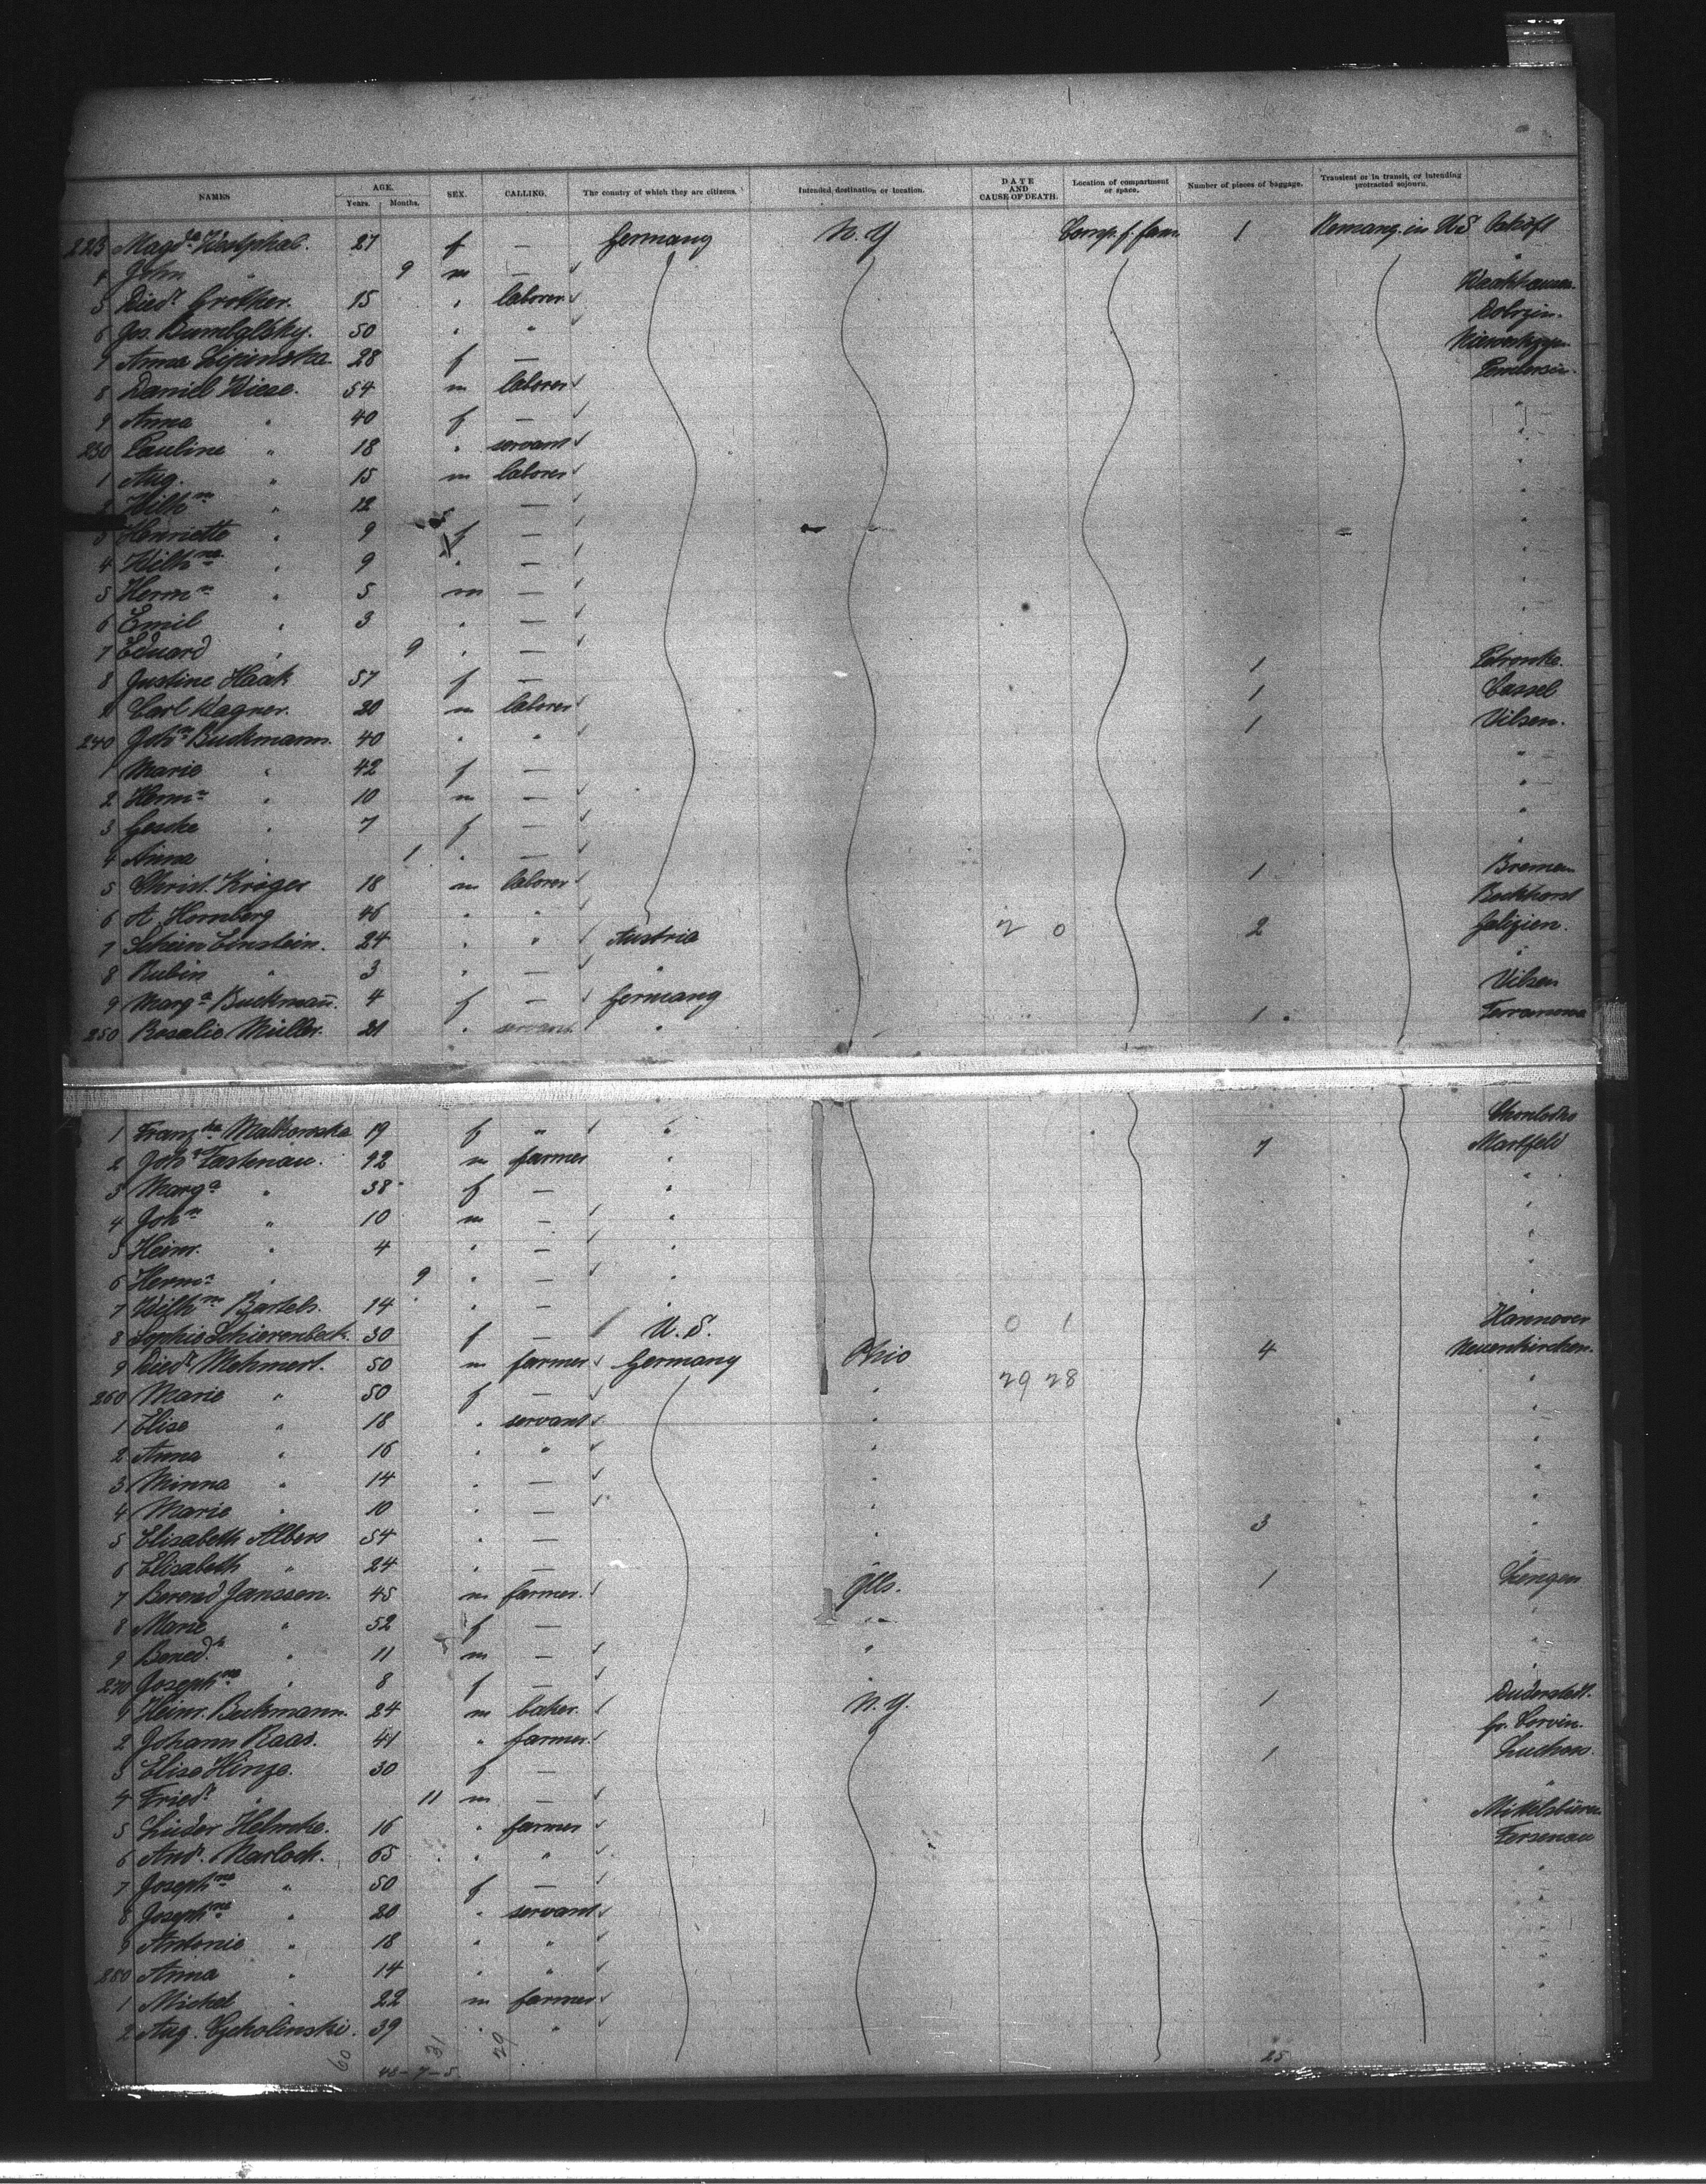 NAMES AGE. Years. Months. SEX. CALLING. The country of which they are citizens. Intended destination or location. DATE AND CAUSE OF DEATH. Location of compartment or space. Number of pieces of baggage. Transient or in transit, or intending protracted sojourn.
223 Magd.a Westphal. 27 f — Germany N.Y 1 in US
4 John " 9 m —
5 Died.r Grother. 15 " laborer
6 Jos. 50 " " Dobrzin.
7 Anna Lipinska 28 f —
8 Daniel Wiese. 54 m laborer
9 Anna " 40 f — "
230 Pauline " 18 " servant "
1 Aug. " 15 m laborer "
2 Wilh.m " 12 — "
3 Henriette " 9 f — "
4 Wilh.ne " 9 " — "
5 Herm.n " 5 m — "
6 Emil " 3 " — "
7 Eduard " 9 " —
8 Justine Haak 57 f — 1
9 Carl Wagner. 20 m laborer 1 Cassel
240 Joh.n Buckmann. 40 " " 1 Vilsen.
1 Marie " 42 f — "
2 Herm.n " 10 m — "
3 Gesche " 7 f — "
4 Anna " 1 " — "
5 Christ. Kröger 18 m laborer 1 Bremen
6 A. Hornberg 46 " "
7 Einstein. 24 " " Austria 2 0 2 Galizien.
8 Rubin " 3 " — " "
9 Marg.a Buckmañ. 4 f — Germany Vilsen
250 Rosalie Müller. 21 " servant " 1 Terranova
1 Franz.ka Malkowska 19 f " "
2 Joh.n 42 m farmer " 7 Martfeld
3 Marg.a " 38 f — " "
4 Joh.n " 10 m — " "
5 Heinr. " 4 " — " "
6 Herm.n " 9 " — " "
7 Wilh.m Bartels. 14 " — " "
8 Sophie Schierenbeck. 30 f — U.S. 0 1 Hannover
9 Died.r Mehmert. 50 m farmer Germany Ohio 4 Neuenkirchen.
260 Marie " 50 f — " 29 28 "
1 Elise " 18 " servant " "
2 Anna " 16 " " " "
3 Minna " 14 " — " "
4 Marie " 10 " — " "
5 Elisabeth Albers 54 " — " 3 "
6 Elisabeth " 24 " — "
7 Berend Janssen. 45 m farmer. Ills. 1 Lengen
8 Marie " 52 f — " "
9 Bened. " 11 m — " "
270 Joseph.ne " 8 f — " "
1 Heinr. Beckmann. 24 m baker. N.Y. 1 Duderstadt.
2 Johann Raas. 41 " farmer.
3 Elise Hinze. 30 f — 1
4 Fried.r " 11 m — "
5 Lüder Helmcke. 16 " farmer
6 And. Marloch. 65 " "
7 Joseph.ne " 50 f — "
8 Joseph.ne " 20 " servant "
9 Antonie " 18 " " "
280 Anna " 14 " " "
1 Michel " 22 m farmer "
2 Aug. 39 " "
60 31 29
48-7-5 25